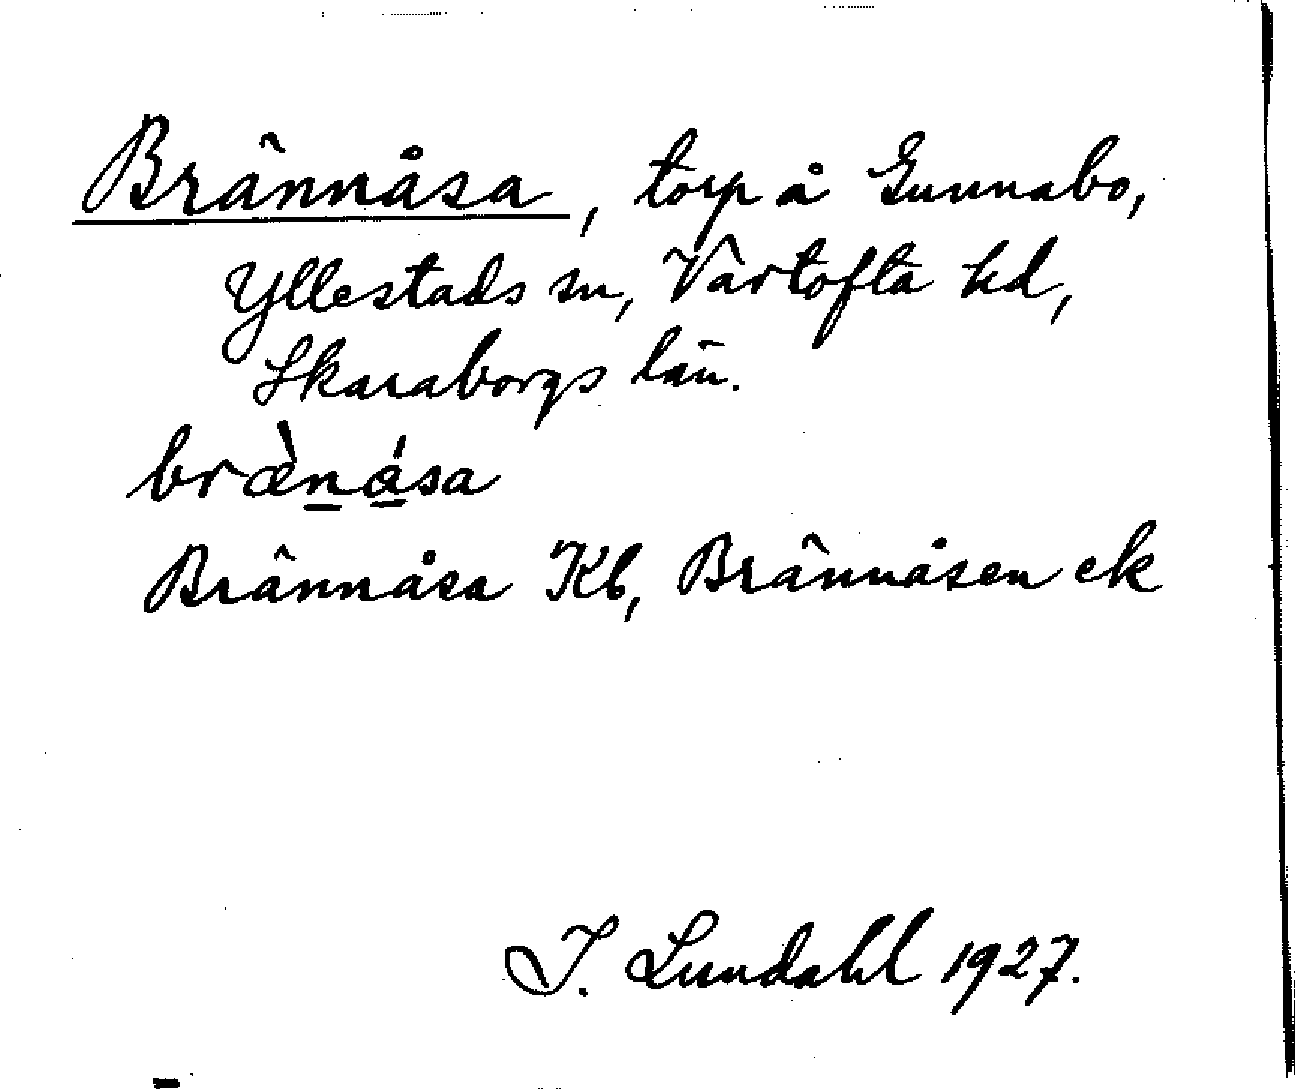 Brännåsa, torp å Gunnabo,
Yllestads sn, Vartofta hd,
Skaraborgs län.
bræ̀n̲á̲sa
Brännåsa Kb, Brännåsen ek
I. Lundahl 1927.